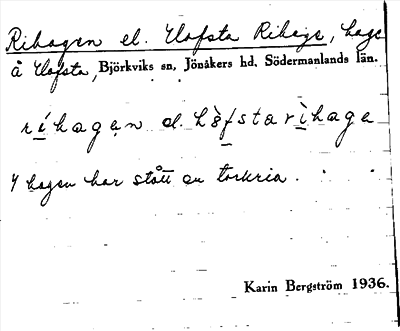 Rihagen el. Hofsta Rihage, hage
å Hofsta, Björkviks sn, Jönåkers hd, Södermanlands län.
rihagen el. hòfstarìhage
I hagen har stått en torkria.
Karin Bergström 1936.